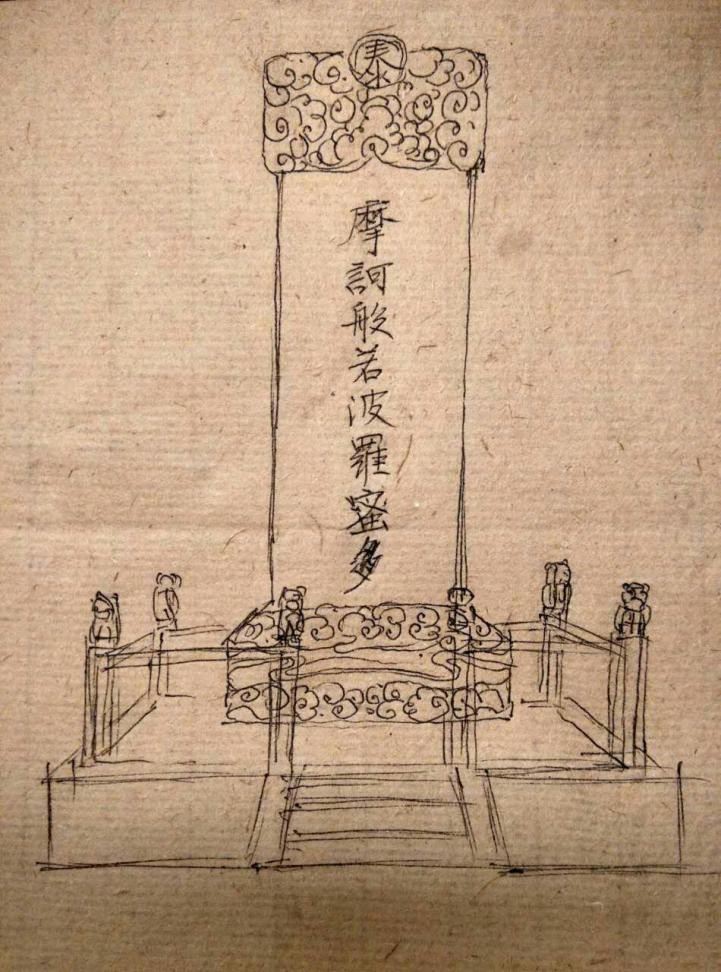 泰
摩訶般若波羅蜜多